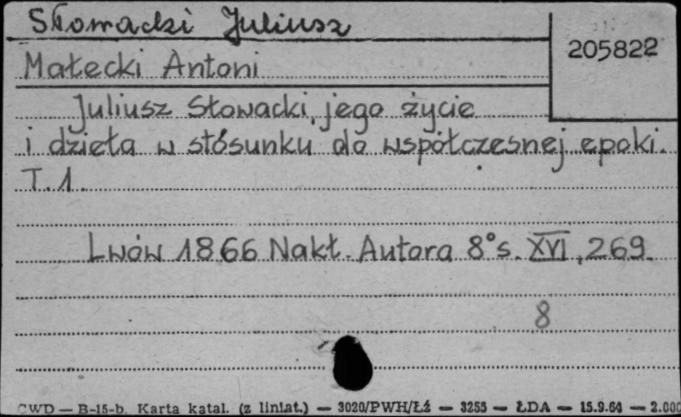 Słowacki Juliusz
205822
Małecki Antoni
Juliusz Słowacki, jego życie
i dzieła w stósunku do współczesnej epoki.
T. 1.
Lwów 1866 Nakł. Autora 8° s. XVI, 269.
8
CWD — B-15-b. Karta katal. (z liniat.) — 3020/PWH/Łź — 3255 — ŁDA — 15.9.64 — 2.000